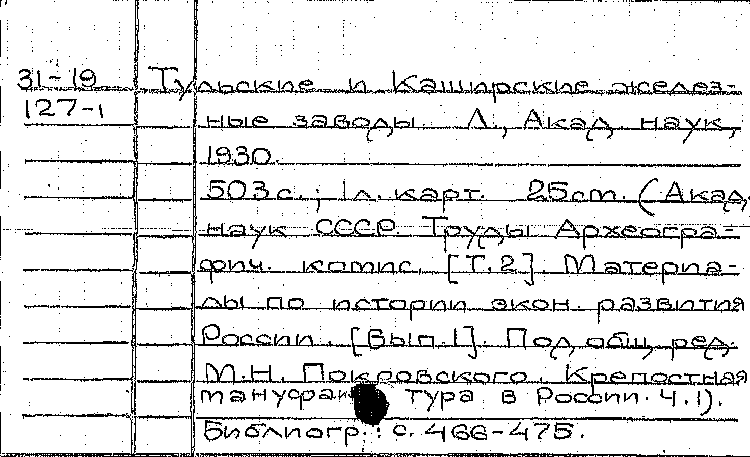 31-19
127-1
Тульские и Каширские желез-
ные заводы. Л., Акад. наук,
1930.
503 с.; 1 л. карт. 25 cm. (Акад.
наук СССР. Труды Археогра-
фич. комис. [Т.2]. Материа-
лы по истории экон. развития
России. [Вып.1]. Под общ. ред.
М.Н. Покровского. Крепостная
мануфак тура в России. Ч.1).
Библиогр.: с. 466-475.